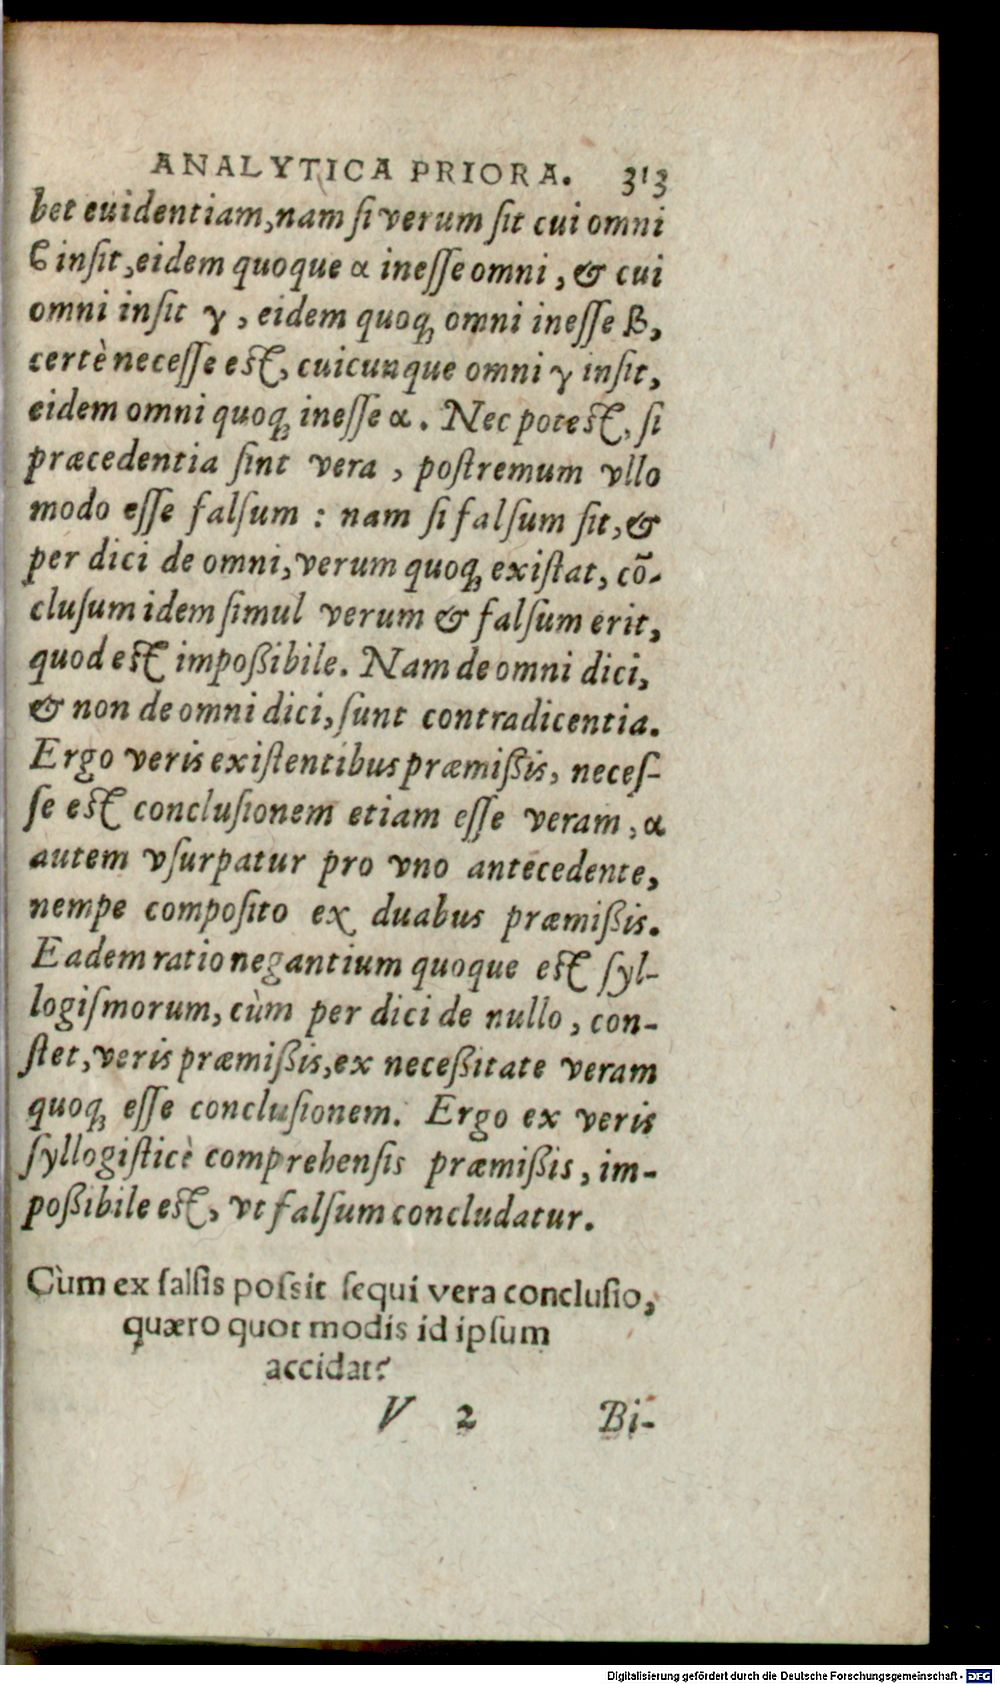 ANALYTICA PRIORA. 313
bet euidentiam, nam ſi verum ſit cui omni
ϐ inſit, eidem quoque α ineſſe omni, & cui
omni inſit γ, eidem quoq; omni ineſſe β,
certè neceſſe eſt, cuicunque omni γ inſit,
eidem omni quoq; ineſſe α. Nec poteſt, ſi
præcedentia ſint vera, poſtremum vllo
modo eſſe falſum : nam ſi falſum ſit, &
per dici de omni, verum quoq; exiſtat, cõ-
cluſum idem ſimul verum & falſum erit,
quod eſt impoßibile. Nam de omni dici,
& non de omni dici, ſunt contradicentia.
Ergo veris exiſtentibus præmißis, neceſ-
ſe eſt concluſionem etiam eſſe veram, α
autem vſurpatur pro vno antecedente,
nempe compoſito ex duabus præmißis.
Eadem ratio negantium quoque eſt ſyl-
logiſmorum, cùm per dici de nullo, con-
ſtet, veris præmißis, ex neceßitate veram
quoq; eſſe concluſionem. Ergo ex veris
ſyllogiſticè comprehenſis præmißis, im-
poßibile eſt, vt falſum concludatur.
Cùm ex falſis poſsit ſequi vera concluſio,
quæro quot modis id ipſum
accidat?
V 2 Bi-
Digitalisierung gefördert durch die Deutsche Forschungsgemeinschaft - DFG